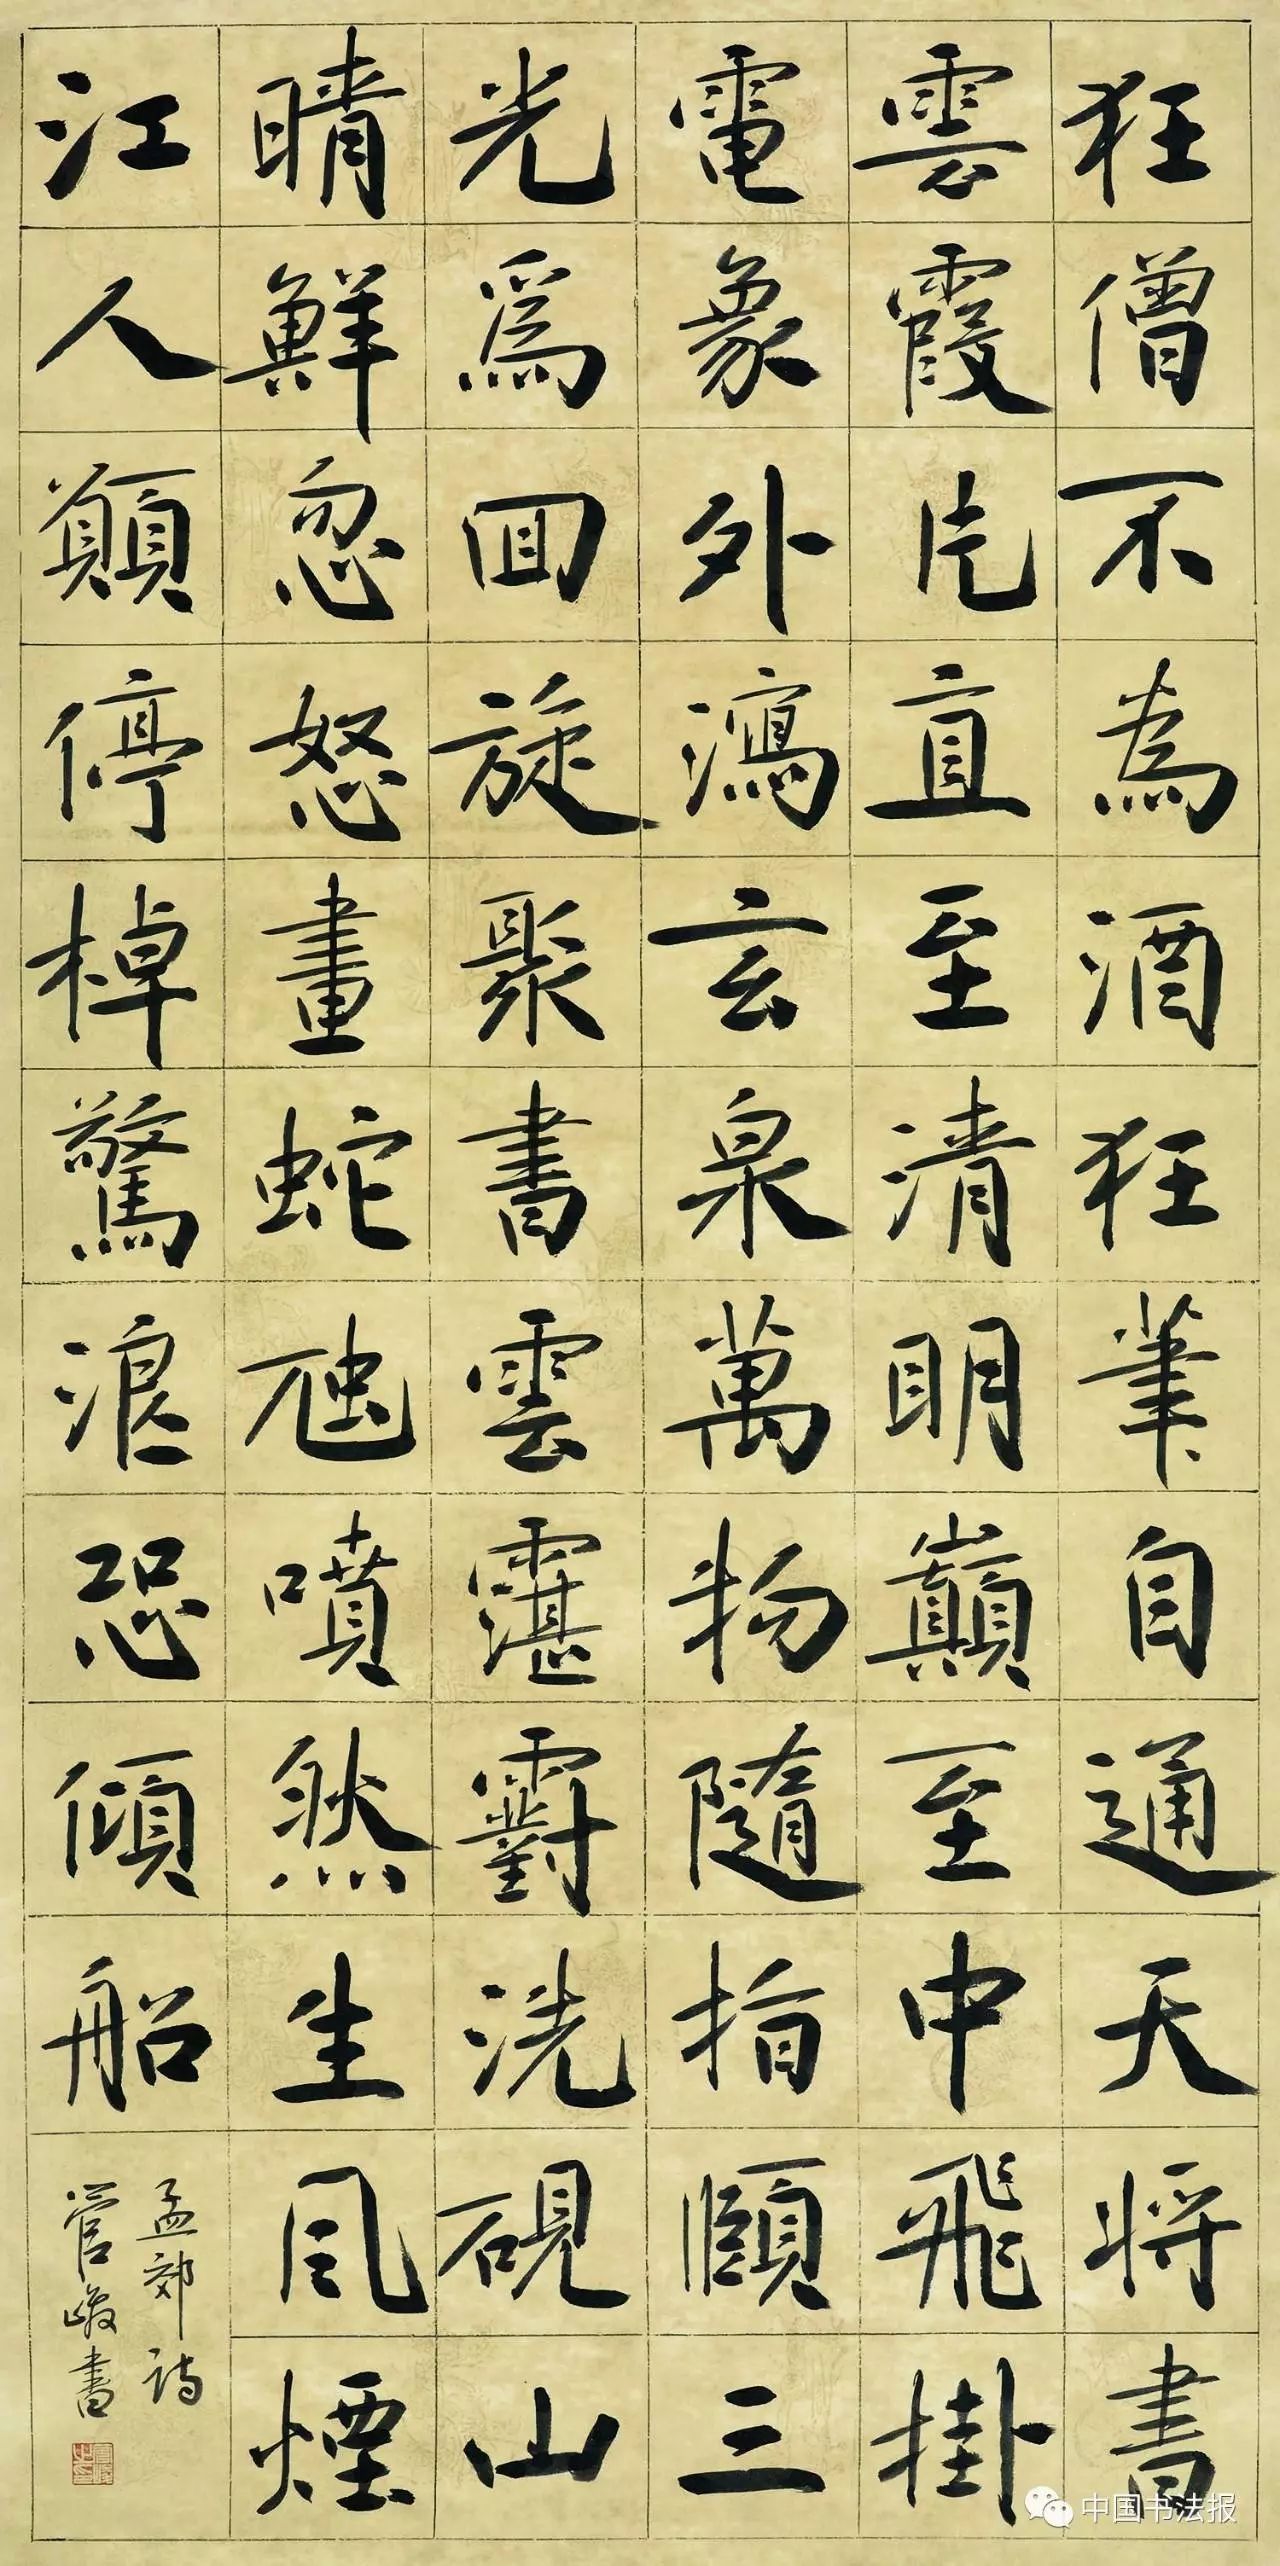 狂僧不為酒狂筆自通天将書
雲霞片直至清明巔至中飛掛
電象外瀉玄泉萬物隨指顧三
光為回旋聚書雲霮䨴洗硯山
晴鮮忽怒畫蛇虺噴然生風煙
江人願停棹驚浪恐傾船
孟郊詩
管峻書
中国书法报